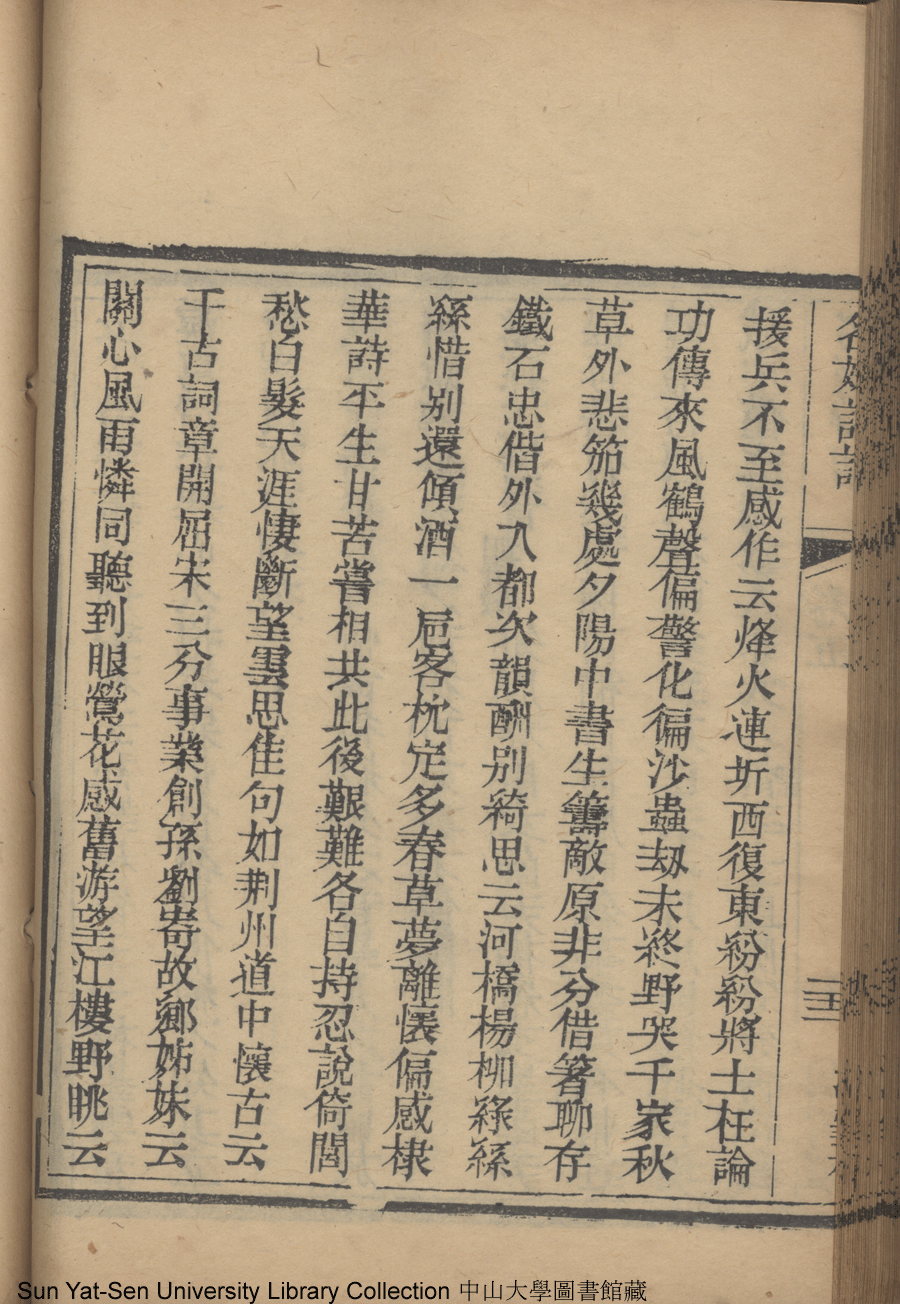 援兵不至感作云烽火連圻西復東紛紛將士枉論
功傳來風鶴聲偏警化徧沙蟲刼未終野哭千家秋
草外悲笳幾處夕陽中書生籌敵原非分借箸聊存
鐵石忠偕外入都次韻酬别綺思云河橋楊柳綠絲
絲惜别還傾酒一卮客枕定多春草夢離懷偏感棣
華詩平生甘苦嘗相共此後艱難各自持忍說倚閭
愁白髮天涯悽斷望雲思佳句如荆州道中懷古云
千古詞章開屈宋三分事業創孫劉寄故鄉姊妹云
關心風雨憐同聽到眼鶯花感舊游望江樓野眺云
Sun Yat-Sen University Library Collection 中山大學圖書館藏